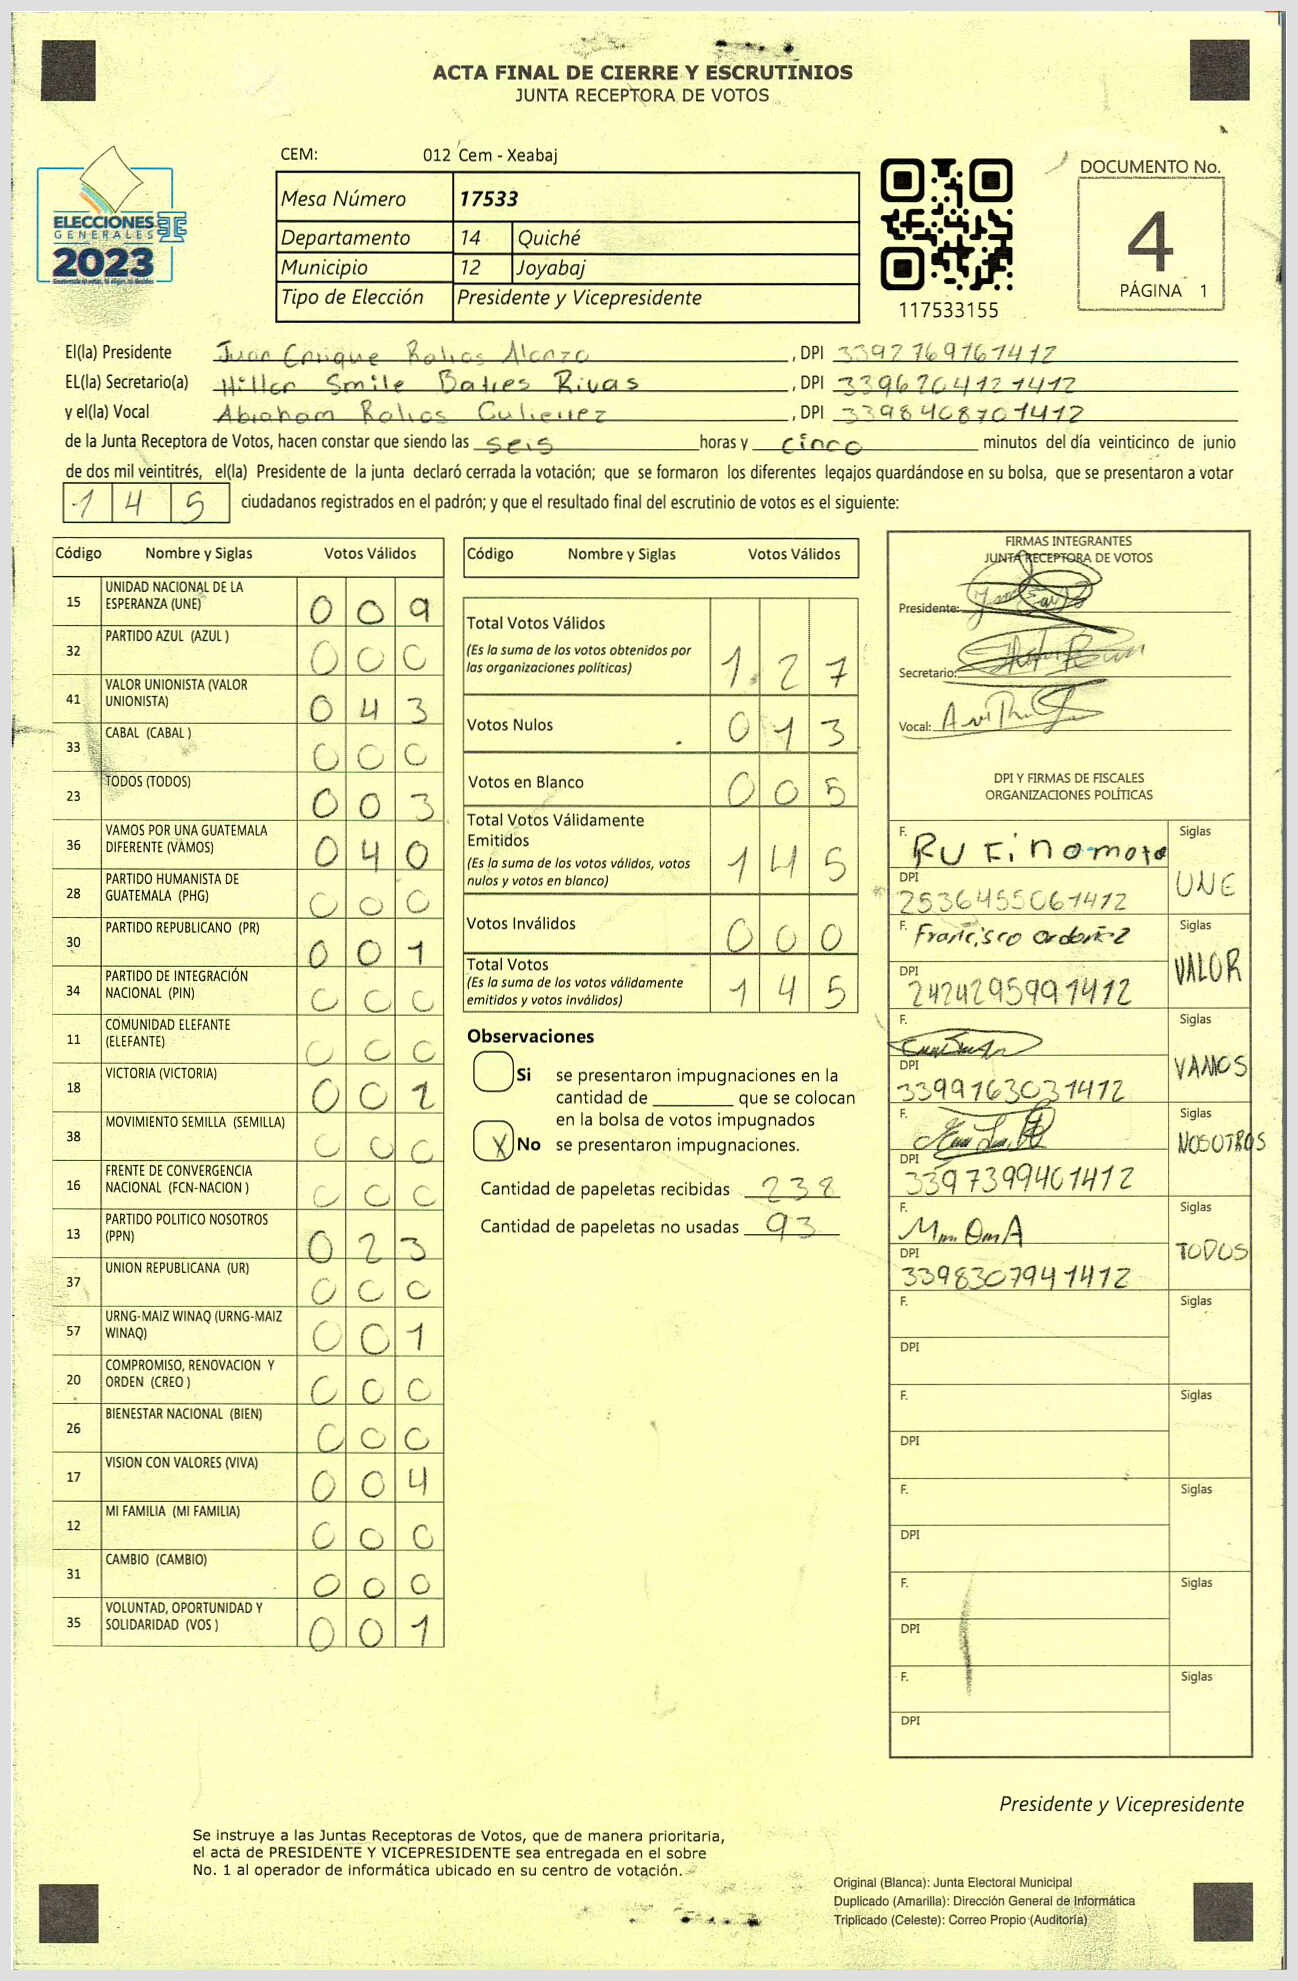 ACTA FINAL DE CIERRE Y ESCRUTINIOS
JUNTA RECEPTORA DE VOTOS
ELECCIONES
GENERALES
2023
CEM: 012 Cem - Xeabaj
Mesa Número 17533
Departamento 14 Quiché
Municipio 12 Joyabaj
Tipo de Elección Presidente y Vicepresidente
117533155
DOCUMENTO No.
4
PÁGINA 1
El(la) Presidente Juan Enrique Rolios Alonzo , DPI 3392769761412
EL(la) Secretario(a) Hiller Smile Batres Rivas , DPI 3396704121412
y el(la) Vocal Abraham Rolios Gutierrez , DPI 3398408701412
de la Junta Receptora de Votos, hacen constar que siendo las seis horas y cinco minutos del día veinticinco de junio
de dos mil veintitrés, el(la) Presidente de la junta declaró cerrada la votación; que se formaron los diferentes legajos quardándose en su bolsa, que se presentaron a votar
145 ciudadanos registrados en el padrón; y que el resultado final del escrutinio de votos es el siguiente:
Código Nombre y Siglas Votos Válidos
15 UNIDAD NACIONAL DE LA ESPERANZA (UNE) 009
32 PARTIDO AZUL (AZUL ) 000
41 VALOR UNIONISTA (VALOR UNIONISTA) 043
33 CABAL (CABAL ) 000
23 TODOS (TODOS) 003
36 VAMOS POR UNA GUATEMALA DIFERENTE (VAMOS) 040
28 PARTIDO HUMANISTA DE GUATEMALA (PHG) 000
30 PARTIDO REPUBLICANO (PR) 001
34 PARTIDO DE INTEGRACIÓN NACIONAL (PIN) 000
11 COMUNIDAD ELEFANTE (ELEFANTE) 000
18 VICTORIA (VICTORIA) 002
38 MOVIMIENTO SEMILLA (SEMILLA) 000
16 FRENTE DE CONVERGENCIA NACIONAL (FCN-NACION ) 000
13 PARTIDO POLITICO NOSOTROS (PPN) 023
37 UNION REPUBLICANA (UR) 000
57 URNG-MAIZ WINAQ (URNG-MAIZ WINAQ) 001
20 COMPROMISO, RENOVACION Y ORDEN (CREO ) 000
26 BIENESTAR NACIONAL (BIEN) 000
17 VISION CON VALORES (VIVA) 004
12 MI FAMILIA (MI FAMILIA) 000
31 CAMBIO (CAMBIO) 000
35 VOLUNTAD, OPORTUNIDAD Y SOLIDARIDAD (VOS ) 001
Código Nombre y Siglas Votos Válidos
Total Votos Válidos
(Es la suma de los votos obtenidos por las organizaciones políticas) 127
Votos Nulos 013
Votos en Blanco 005
Total Votos Válidamente Emitidos
(Es la suma de los votos válidos, votos nulos y votos en blanco) 145
Votos Inválidos 000
Total Votos
(Es la suma de los votos válidamente emitidos y votos inválidos) 145
Observaciones
Si se presentaron impugnaciones en la
cantidad de ________ que se colocan
en la bolsa de votos impugnados
X No se presentaron impugnaciones.
Cantidad de papeletas recibidas 238
Cantidad de papeletas no usadas 93
FIRMAS INTEGRANTES
JUNTA RECEPTORA DE VOTOS
Presidente:
Secretario:
Vocal:
DPI Y FIRMAS DE FISCALES
ORGANIZACIONES POLÍTICAS
F. Rufino mota Siglas
DPI UNE
2536455061412
F. Francisco ordoñez Siglas
DPI VALOR
2424295991412
F. Siglas
DPI VAMOS
3399763031412
F. Siglas
DPI NOSOTROS
3397399401412
F. Siglas
DPI TODOS
3398307941412
F. Siglas
DPI
F. Siglas
DPI
F. Siglas
DPI
F. Siglas
DPI
F. Siglas
DPI
Presidente y Vicepresidente
Se instruye a las Juntas Receptoras de Votos, que de manera prioritaria,
el acta de PRESIDENTE Y VICEPRESIDENTE sea entregada en el sobre
No. 1 al operador de informática ubicado en su centro de votación.
Original (Blanca): Junta Electoral Municipal
Duplicado (Amarilla): Dirección General de Informática
Triplicado (Celeste): Correo Propio (Auditoría)